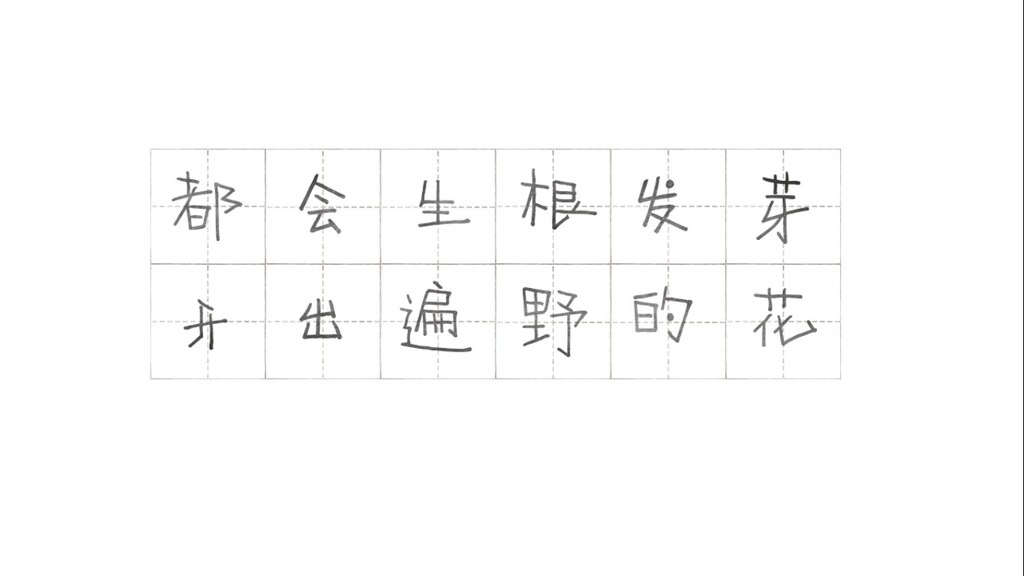 都会生根发芽
开出遍野的花